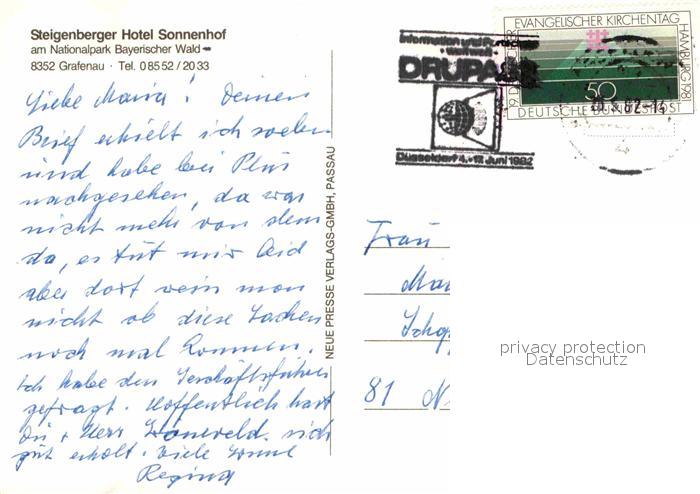 Steigenberger Hotel Sonnenhof
am Nationalpark Bayerischer Wald
8352 Grafenau · Tel. 0 85 52 / 20 33
Liebe Maria! Deinen
Brief erhielt ich soeben
und habe bei Plus
nachgesehen, da war
nicht mehr von dem
da, es tut mir leid
aber dort weis man
nicht ob diese Sachen
noch mal kommen.
Ich habe den Geschäftsführer
gefragt. Hoffentlich hast
Du + Herr sich
gut erholt. Viele
Regina
NEUE PRESSE VERLAGS-GMBH, PASSAU
DRUPA
Düsseldorf 4.-17. Juni 1982
19. DEUTSCHER
EVANGELISCHER KIRCHENTAG
HAMBURG 1981
50
DEUTSCHE BUNDESPOST
82-14
Frau
81 N
privacy protection
Datenschutz